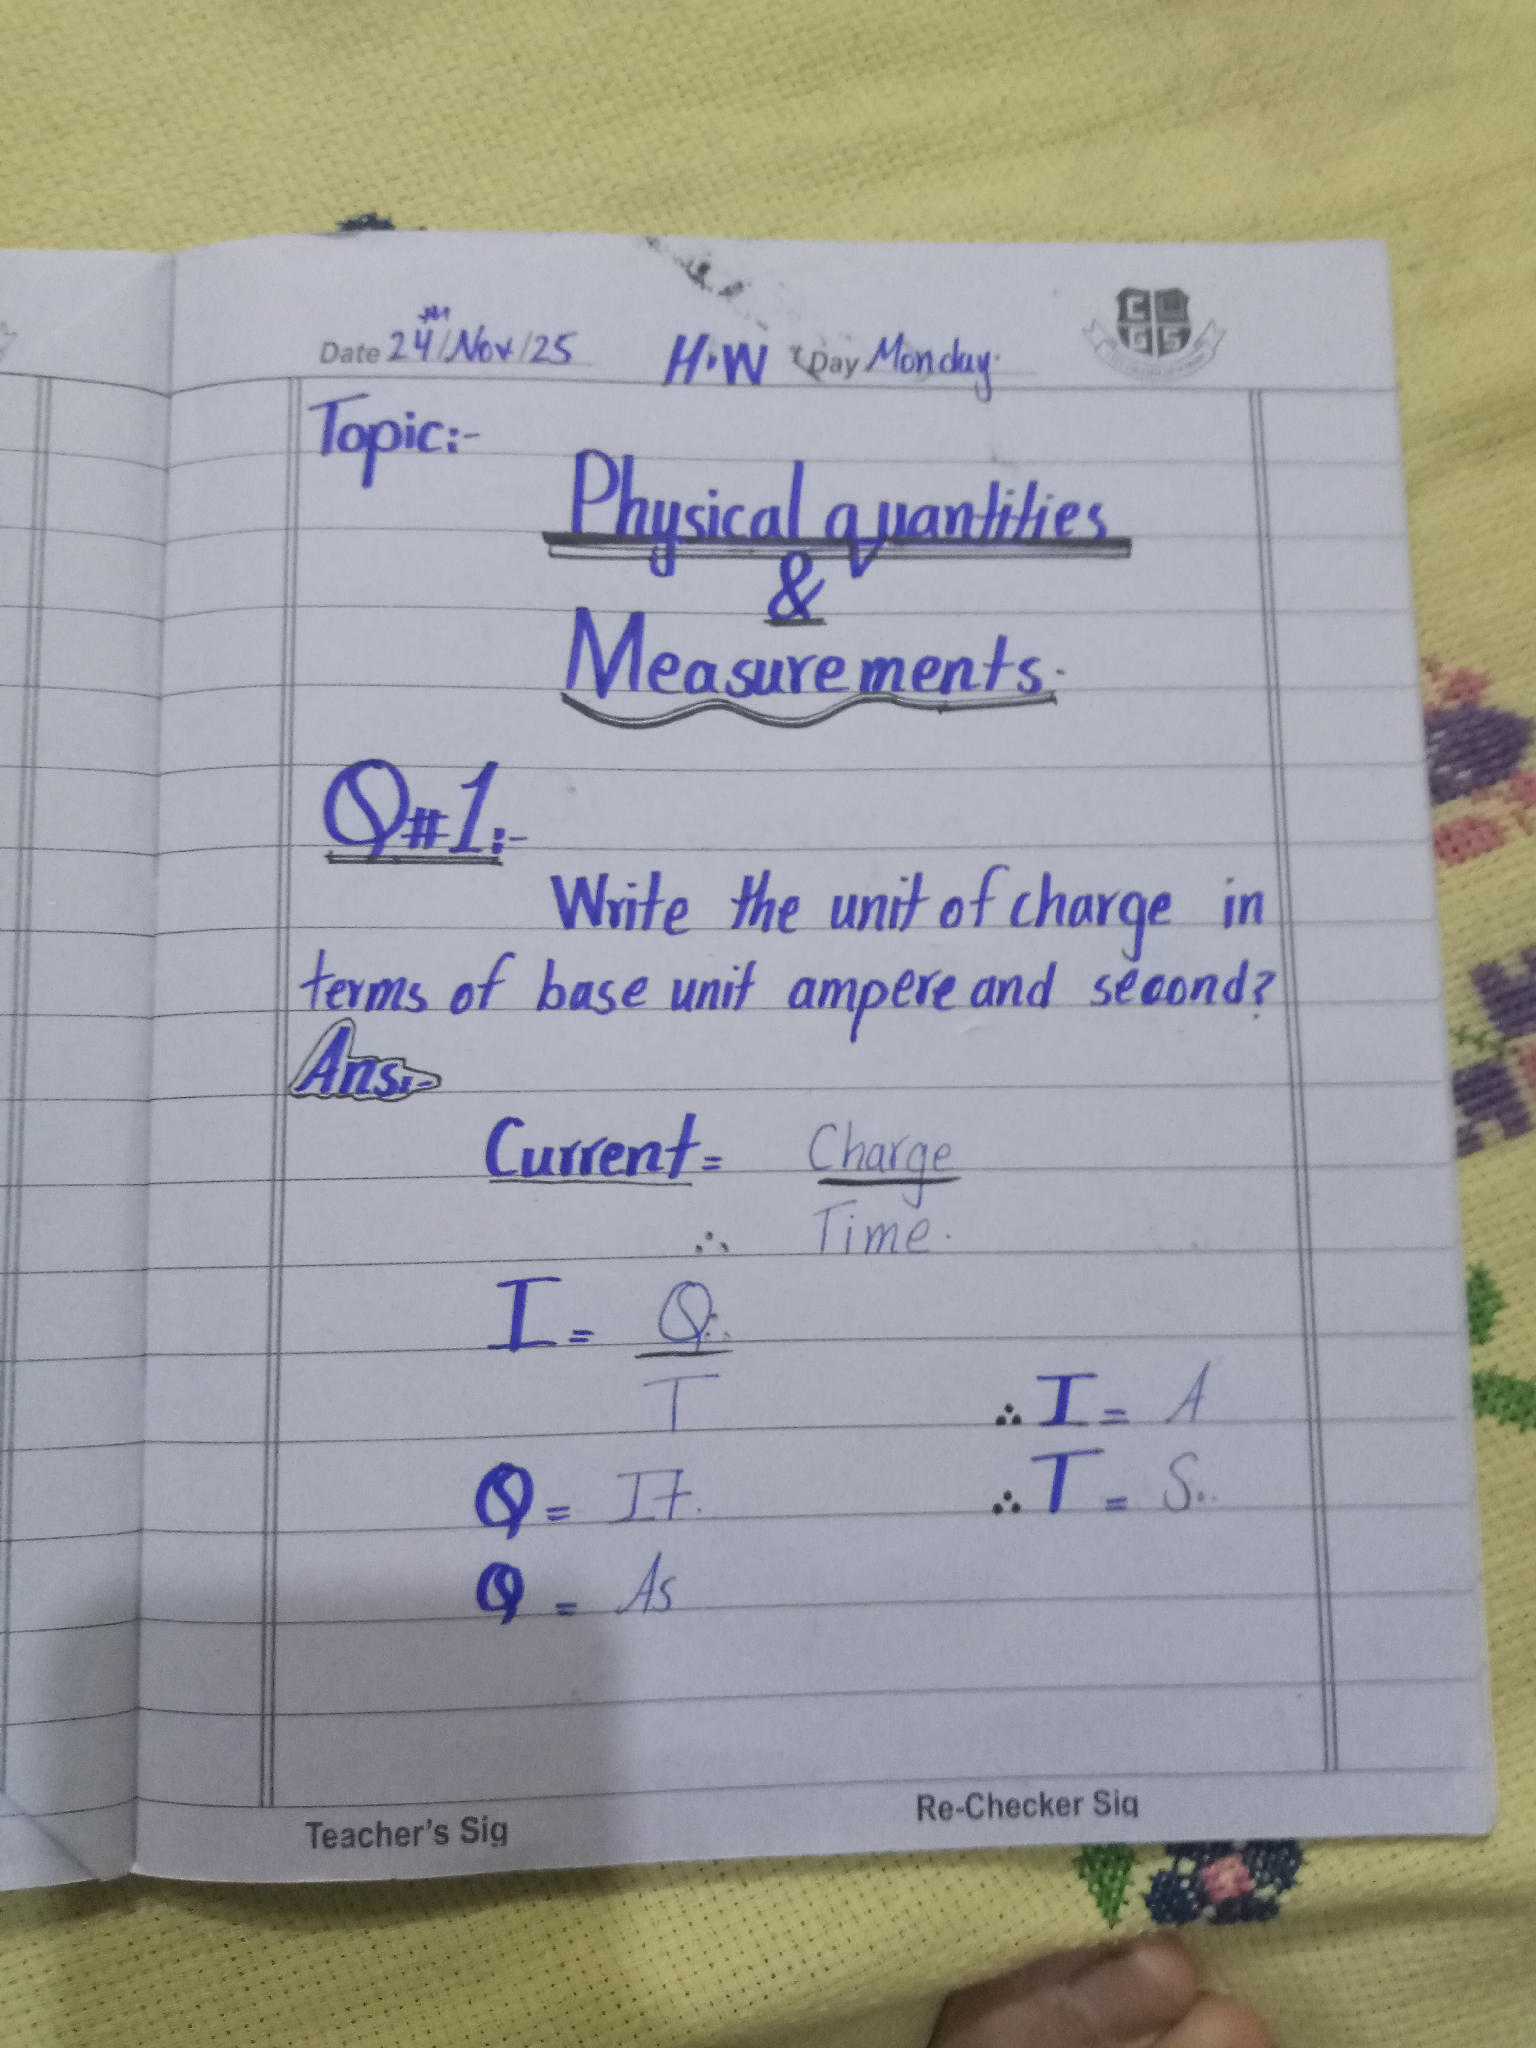 Date 24/Nov/25 H.W Day Monday.
CL
GS
Topic:-
Physical quantities
&
Measurements.
Q#1:-
Write the unit of charge in
terms of base unit ampere and second?
Ans:-
Current = Charge
∴ Time.
I = Q
T ∴ I = A
Q = It. ∴ T = S.
Q = As
Teacher's Sig Re-Checker Sig